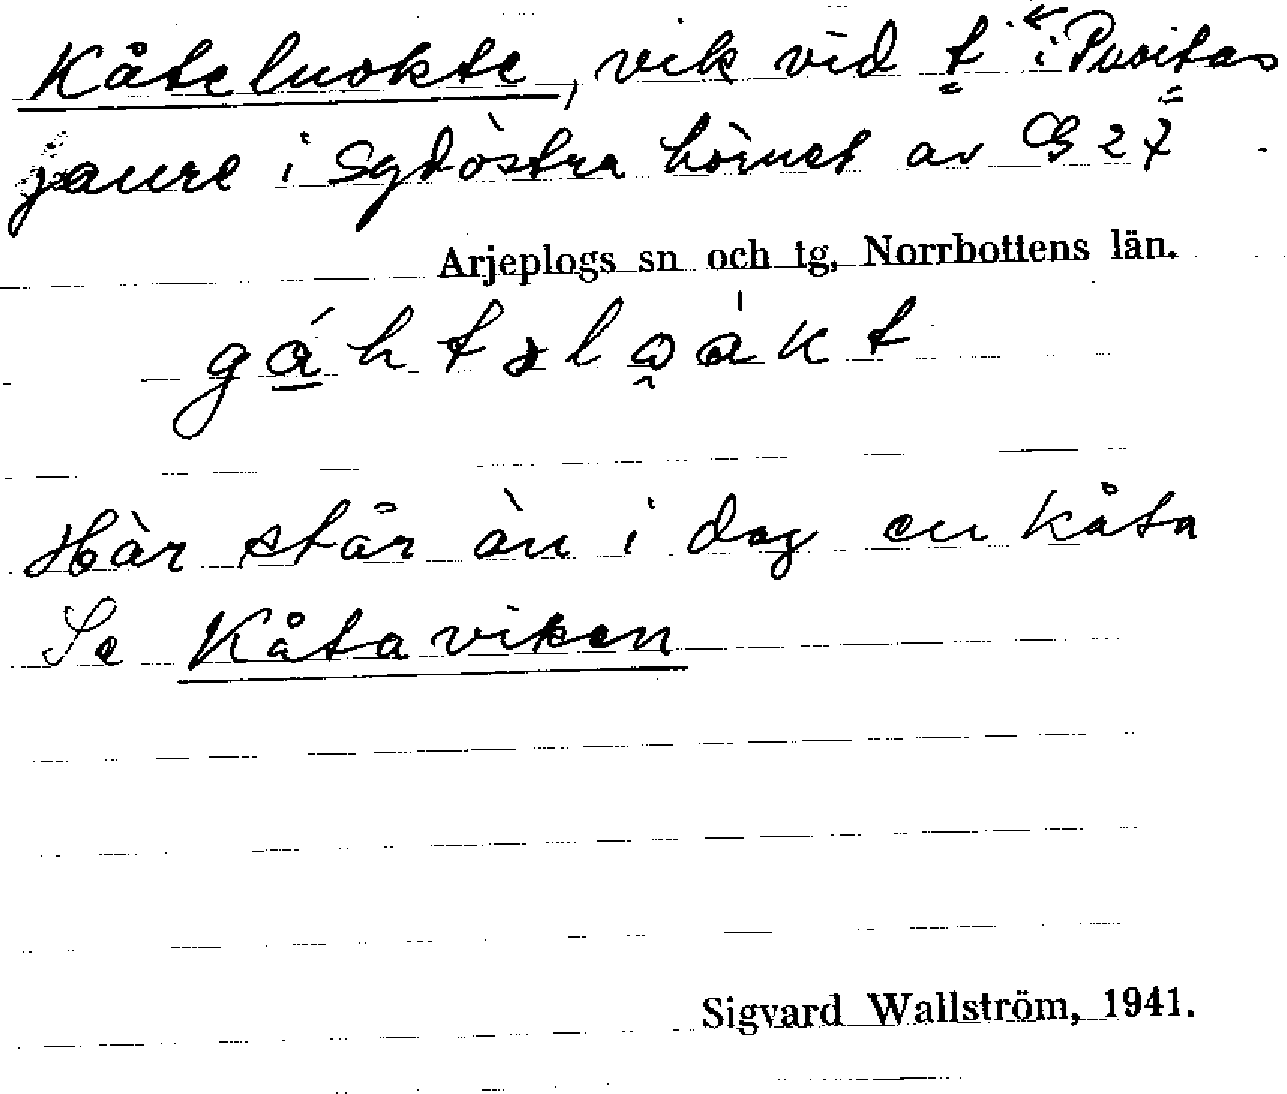 Kåteluokte, vik vid t i Puoitas
jaure i sydöstra hörnet av G 27.
Arjeplogs sn och tg, Norrbottens län.
gáhtəlọàkt
Här står än i dag en kåta
Se Kåtaviken
Sigvard Wallström, 1941.